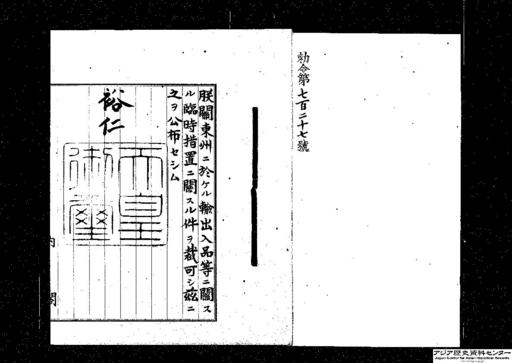 勅令第七百二十七號
朕關東州ニ於ケル輸出入品等ニ關ス
ル臨時措置ニ關スル件ヲ裁可シ茲ニ
之ヲ公布セシム
裕仁
天皇
御璽
内閣
アジア歴史資料センター
Japan Center for Asian Historical Records